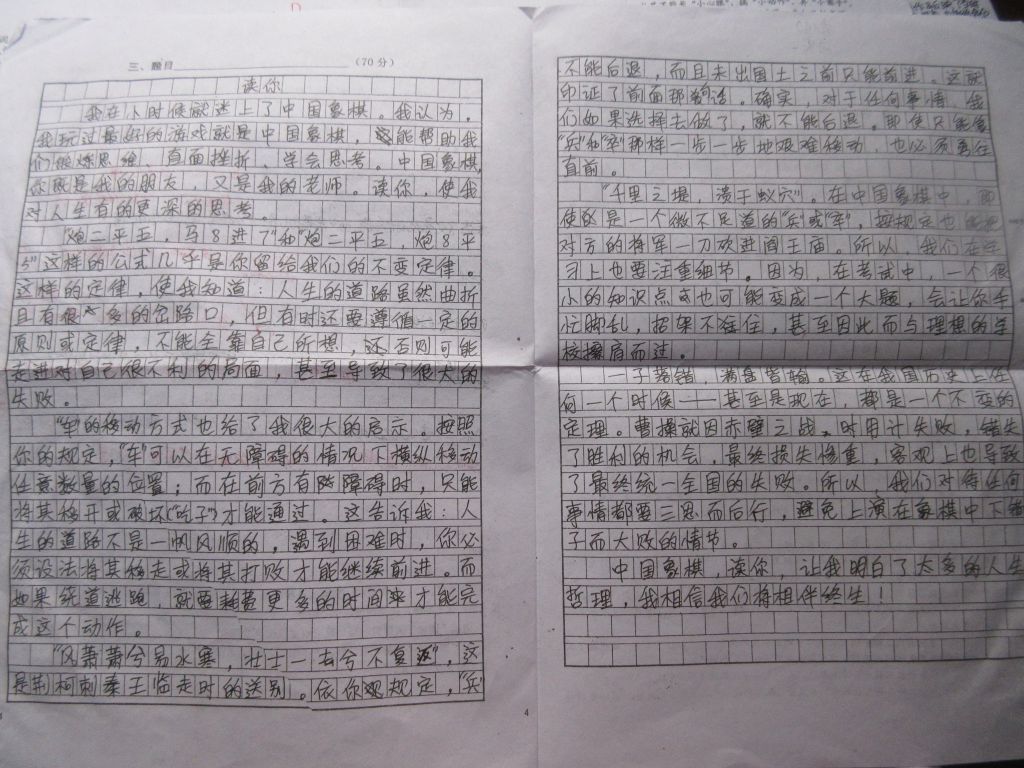 三、题目（70分）
读你
我在小时候就迷上了中国象棋。我认为，
我玩过最好的游戏就是中国象棋，能帮助我
们锻炼思维、直面挫折、学会思考。中国象棋，
你既是我的朋友，又是我的老师。读你，使我
对人生有的更深的思考。
“炮二平五，马8进7”和“炮二平五，炮8平
5”这样的公式几乎是你留给我们的不变定律。
这样的定律，使我知道：人生的道路虽然曲折
且有很多的岔路口，但有时还要遵循一定的
原则或定律，不能全靠自己所想，否则可能
走进对自己很不利的局面，甚至导致了很大的
失败。
“车”的移动方式也给了我很大的启示。按照
你的规定，“车”可以在无障碍的情况下横纵移动
任意数量的位置；而在前方有障碍时，只能
将其移开或破坏（“吃子”）才能通过。这告诉我：人
生的道路不是一帆风顺的，遇到困难时，你必
须设法将其移走或将其打败才能继续前进。而
如果绕道逃跑，就要耗费更多的时间来才能完
成这个动作。
“风萧萧兮易水寒，壮士一去兮不复返”，这
是荆柯刺秦王临走时的送别。依你规定，“兵”
不能后退，而且未出国土之前只能前进。这就
印证了前面那句话。确实，对于任何事情，我
们如果选择去做了，就不能后退。即使只能像
“兵”和“卒”那样一步一步地艰难移动，也必须勇往
直前。
“千里之堤，溃于蚁穴”。在中国象棋中，即
使是一个微不足道的“兵”或“卒”，按规定也能把
对方的将军一刀砍进阎王庙。所以，我们在学
习上也要注重细节。因为，在考试中，一个很
小的知识点也可能变成一个大题，会让你手
忙脚乱，招架不住，甚至因此而与理想的学
校擦肩而过。
一子落错，满盘皆输。这在我国历史上任
何一个时候——甚至是现在，都是一个不变的
定理。曹操就因赤壁之战时用计失败，错失
了胜利的机会，最终损失惨重，客观上也导致
了最终统一全国的失败。所以，我们对待任何
事情都要三思而后行，避免上演在象棋中下错
子而大败的情节。
中国象棋，读你，让我明白了太多的人生
哲理，我相信我们将相伴终生！
4